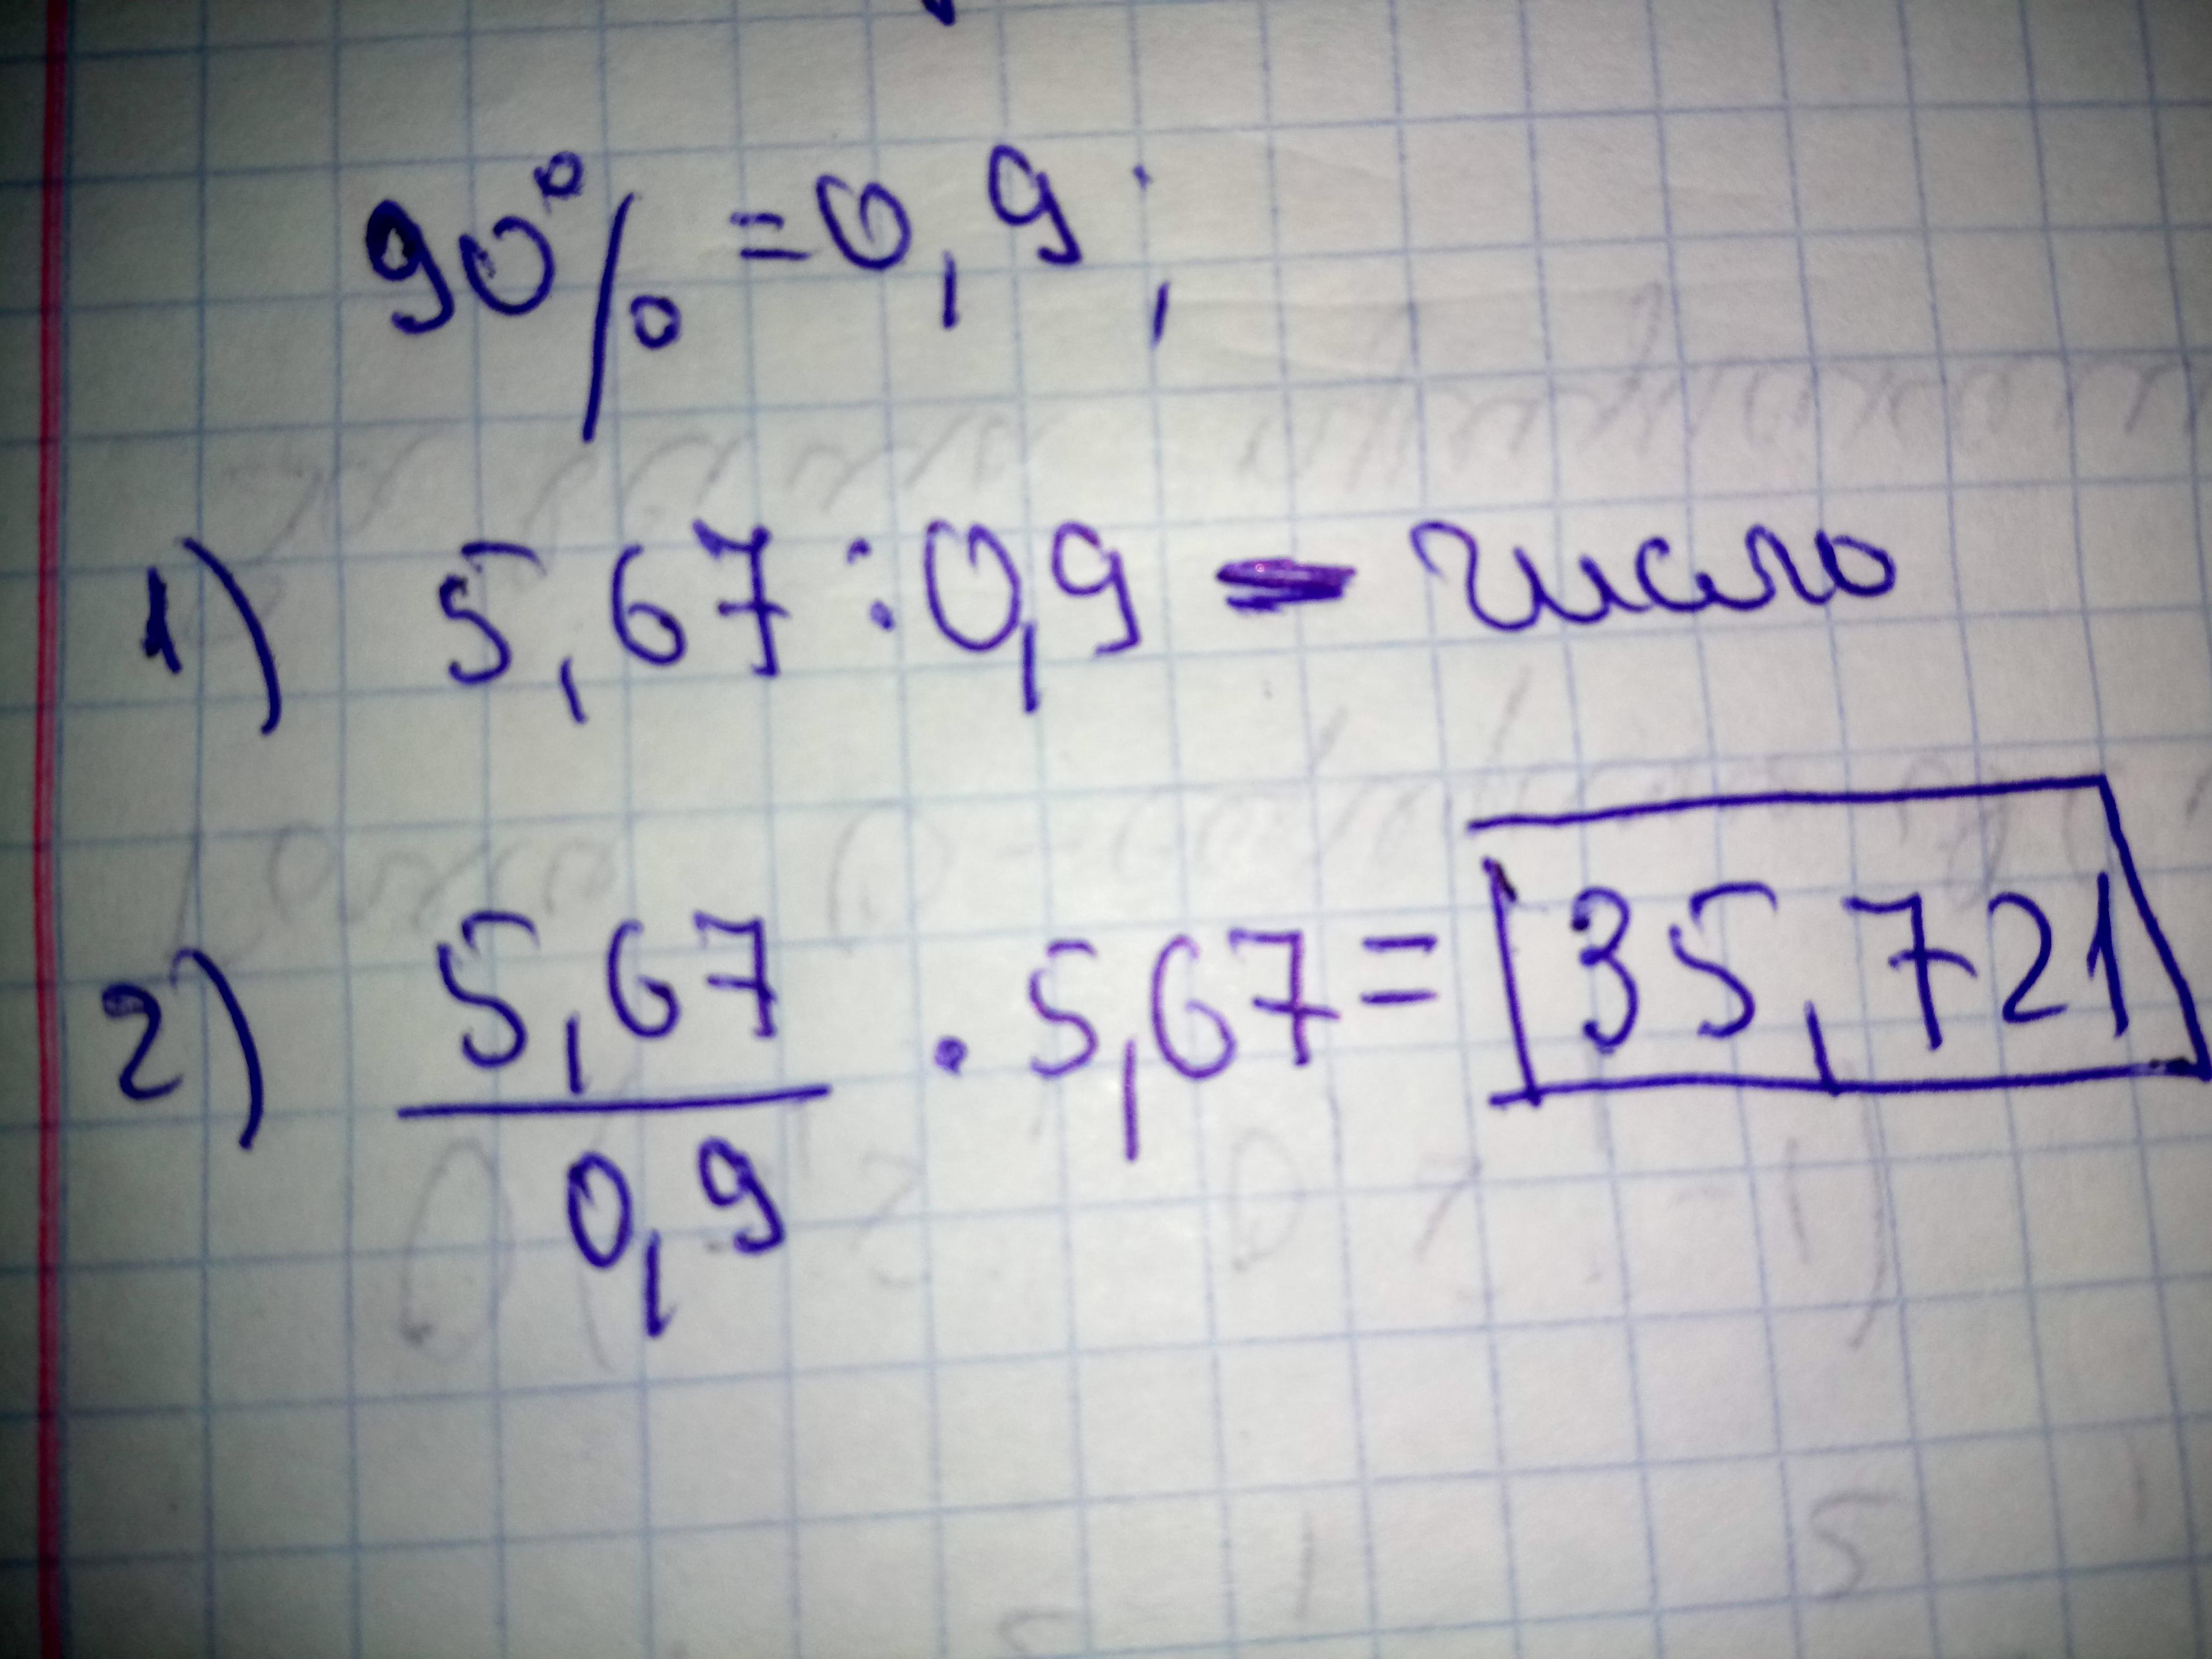 90% = 0,9;
1) 5,67 : 0,9 - число
2) 5,67/0,9 · 5,67 = 35,721